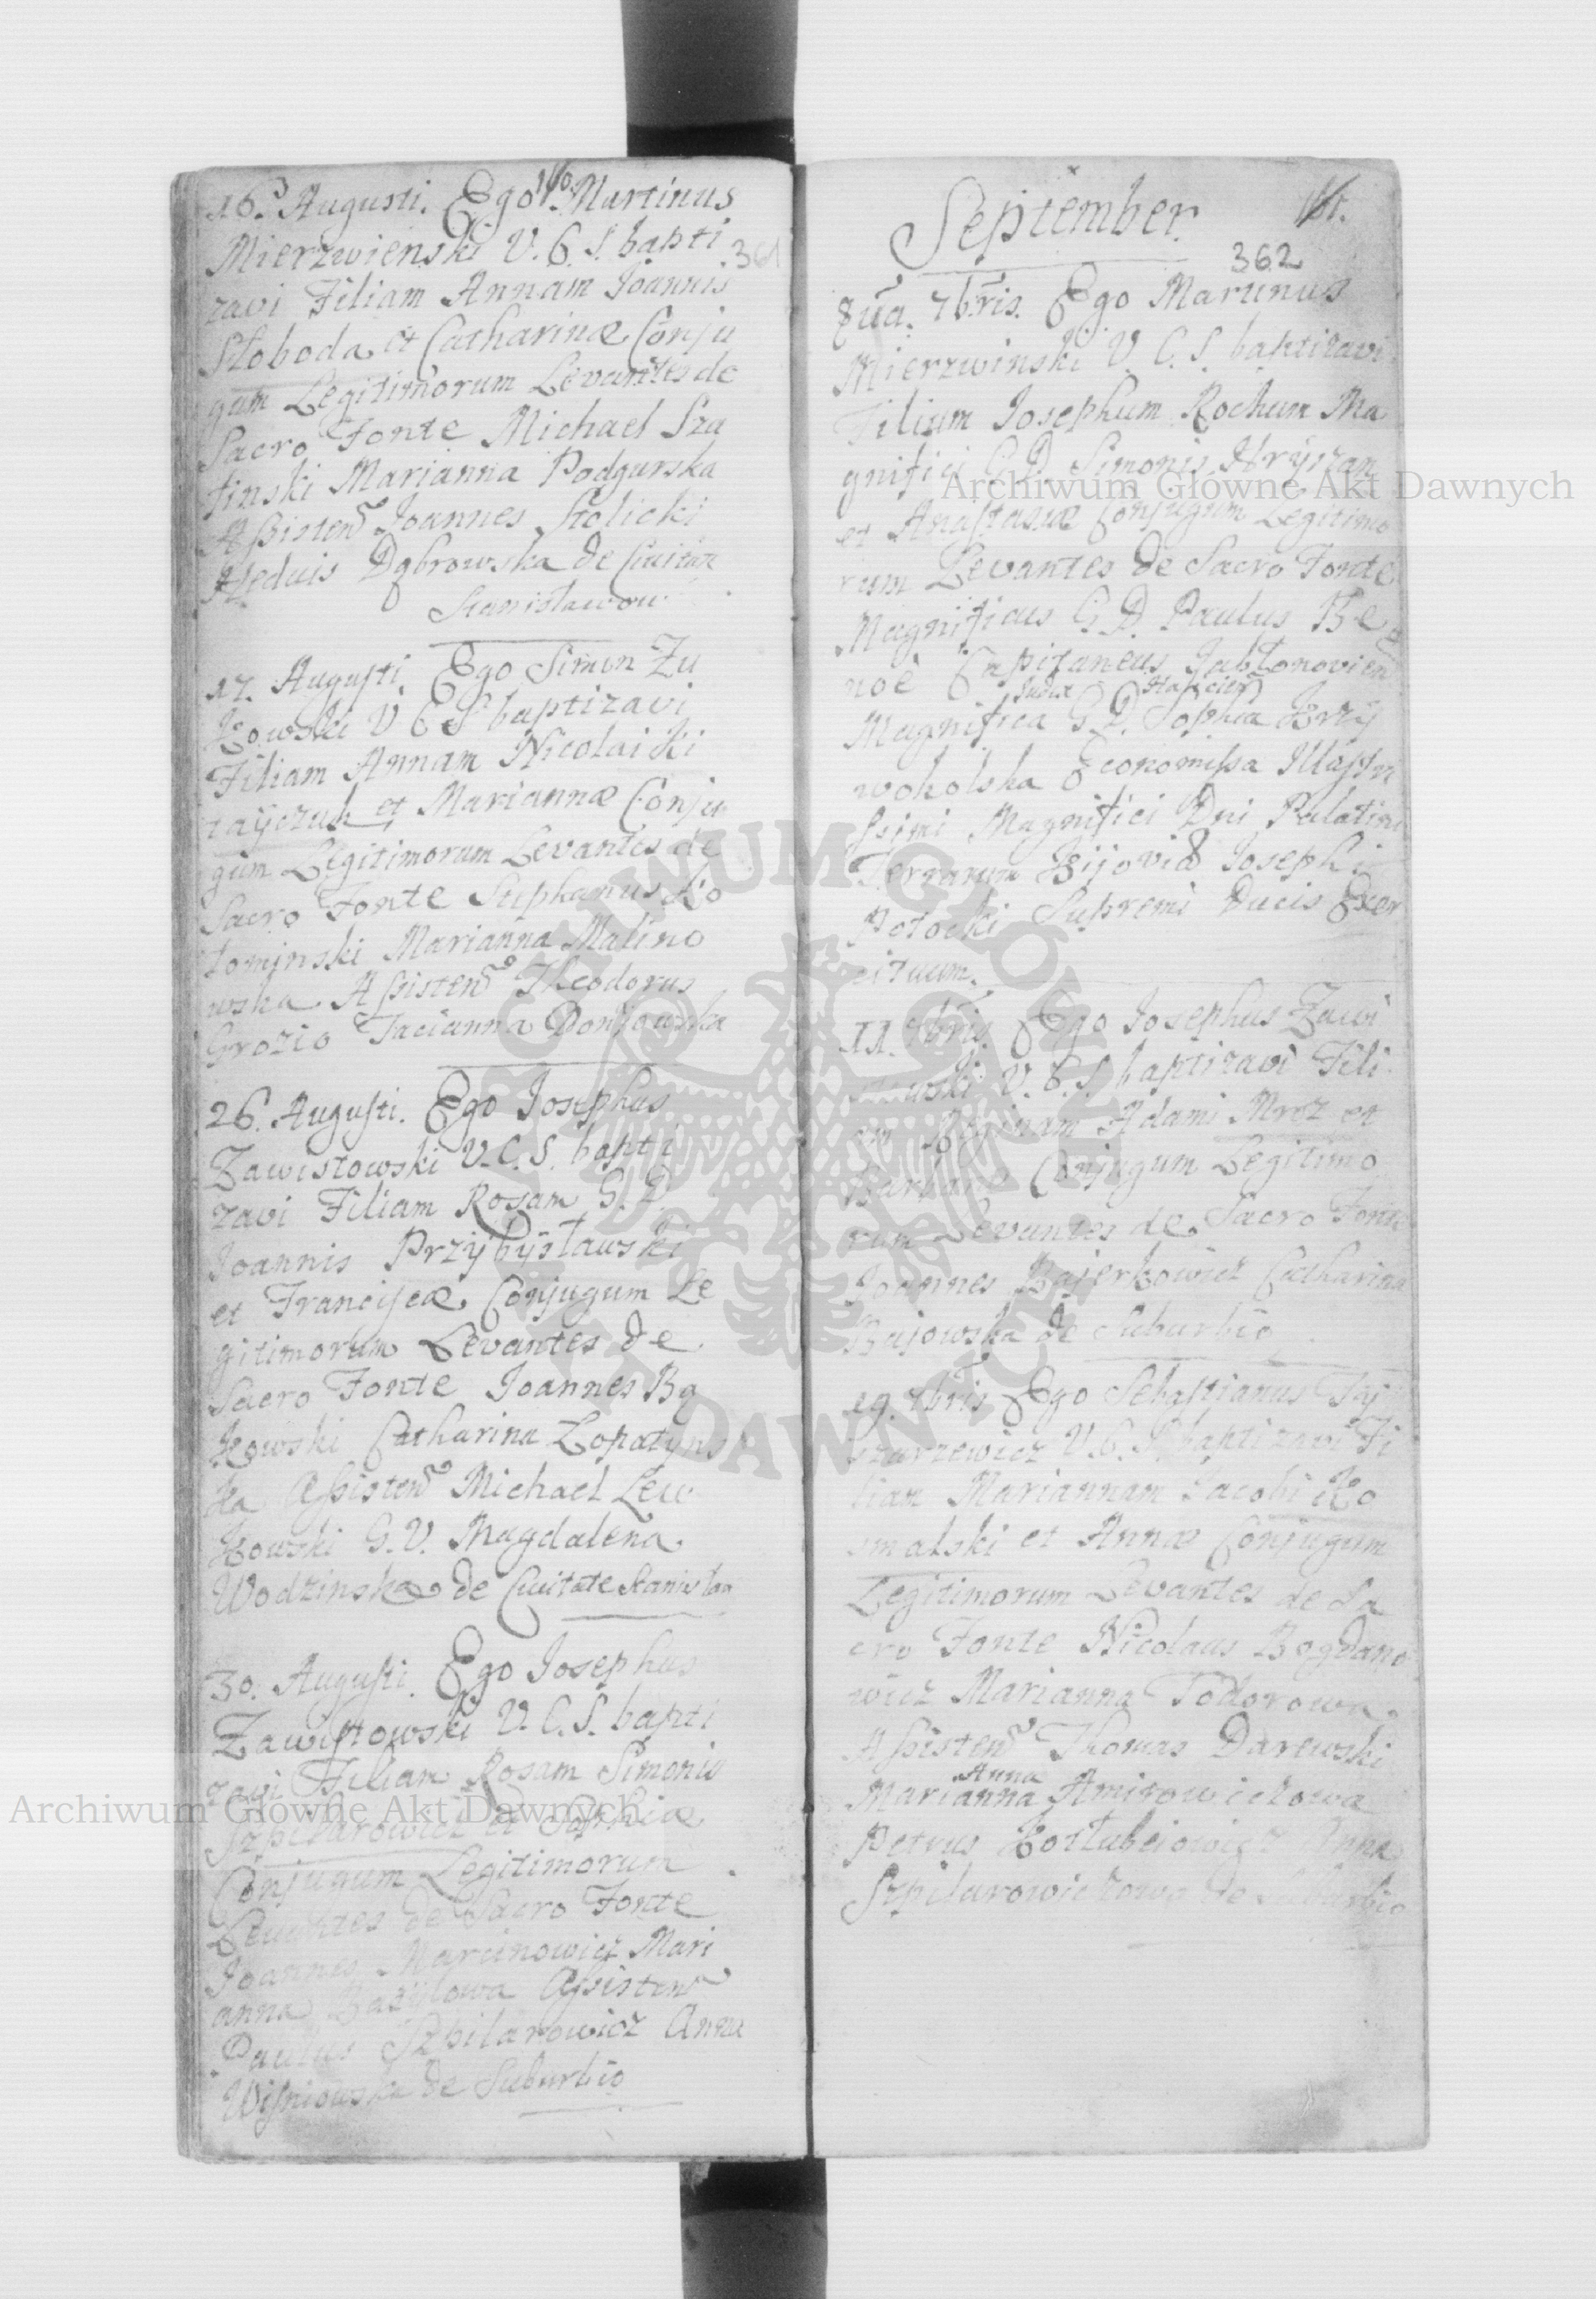 16. Augusti. Ego Martinus
Mierzwienski V. C. S. bapti
361
zavi Filiam Annam Joannis
Słoboda et Catharinæ Conju
gum Legitimorum Levantes de
Sacro Fonte Michael Sza
finski Marianna Podgurska
Assisten Joannes Stolicki
Heduis Dąbrowska de Civitate
Stanisławow
17. Augusti. Ego Simon Zu
kowski V C S baptizavi
Filiam Annam Nicolai Ki
tayczuk et Mariannæ Conju
gum Legitimorum Levantes de
Sacro Fonte Stephanus Ko
łominski Marianna Malino
wska Assisten Theodorus
Grozio Tacianna Donjowska
26. Augusti. Ego Josephus
Zawistowski V. C. S. bapti
zavi Filiam Rosam G. D.
Joannis Przybysławski
et Franciscæ Conjugum Le
gitimorum Levantes de
Sacro Fonte Joannes Bą
kowski Catharina Łopatyns
ka Assisten Michael Lew
kowski G. V. Magdalena
Wodzinska de Civitate Stanisław
30. Augusti. Ego Josephus
Zawistowski V. C. S. bapti
zavi Filiam Rosam Simonis
Szpilarowicz et Sophiæ
Conjugum Legitimorum
Levantes de Sacro Fonte
Joannes Marcinowicz Mari
anna Bazylowa Assisten
Paulus Szpilarowicz Anna
Wisniowska de Suburbio
September
362
8va. 7bris. Ego Martinus
Mierzwinski V. C. S. baptizavi
Filium Josephum Rochum Ma
gnifici G. D. Simonis
et Anastasiæ Conjugum Legitimo
rum Levantes de Sacro Fonte
Magnificus G. D. Paulus Be
noè Capitaneus Jabłonovien
Judex
Magnifica G. D. Sophia Krzy
wokolska Economissa Illustri
ssimi Magnifici Dni Palatini
Terrarum Kijoviæ Josephi
Potocki Supremi Ducis Exer
cituum.
11. 7bris. Ego Josephus Zawi
stowski V. C. S. baptizavi Fili
am Reginam Adami Mroz et
Barbaræ Conjugum Legitimo
rum Levantes de Sacro Fonte
Joannes Bajerkowicz Catharina
Bajowska de Suburbio
7bris Ego Sebastianus
V. C. S. baptizavi Fi
liam Mariannam Jacobi Ko
smalski et Annæ Conjugum
Legitimorum Levantes de Sa
cro Fonte Nicolaus Bogdano
wicz Marianna Todorowa
Assisten Thomas Darewski
Anna
Marianna Amirowiczowa
Petrus Anna
Szpilarowiczowa de Suburbio
Archiwum Główne Akt Dawnych
Archiwum Główne Akt Dawnych
ARCHIWUM GŁÓWNE AKT DAWNYCH